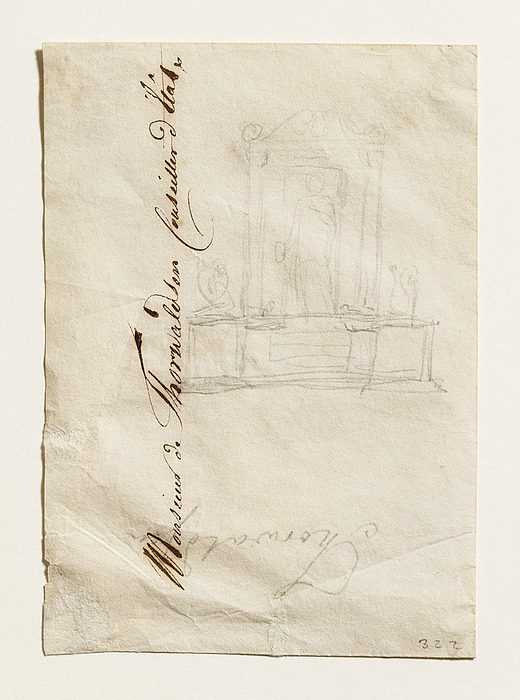 Monsieur de Thorwaldsen Conseiller d'Etat
Thorwalds
322